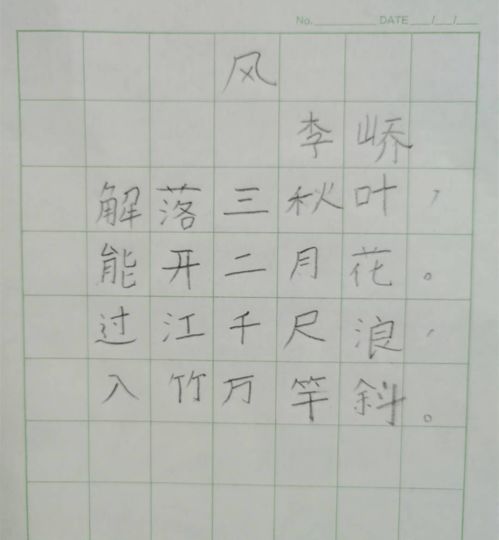 No. DATE / /
风
李峤
解落三秋叶，
能开二月花。
过江千尺浪，
入竹万竿斜。